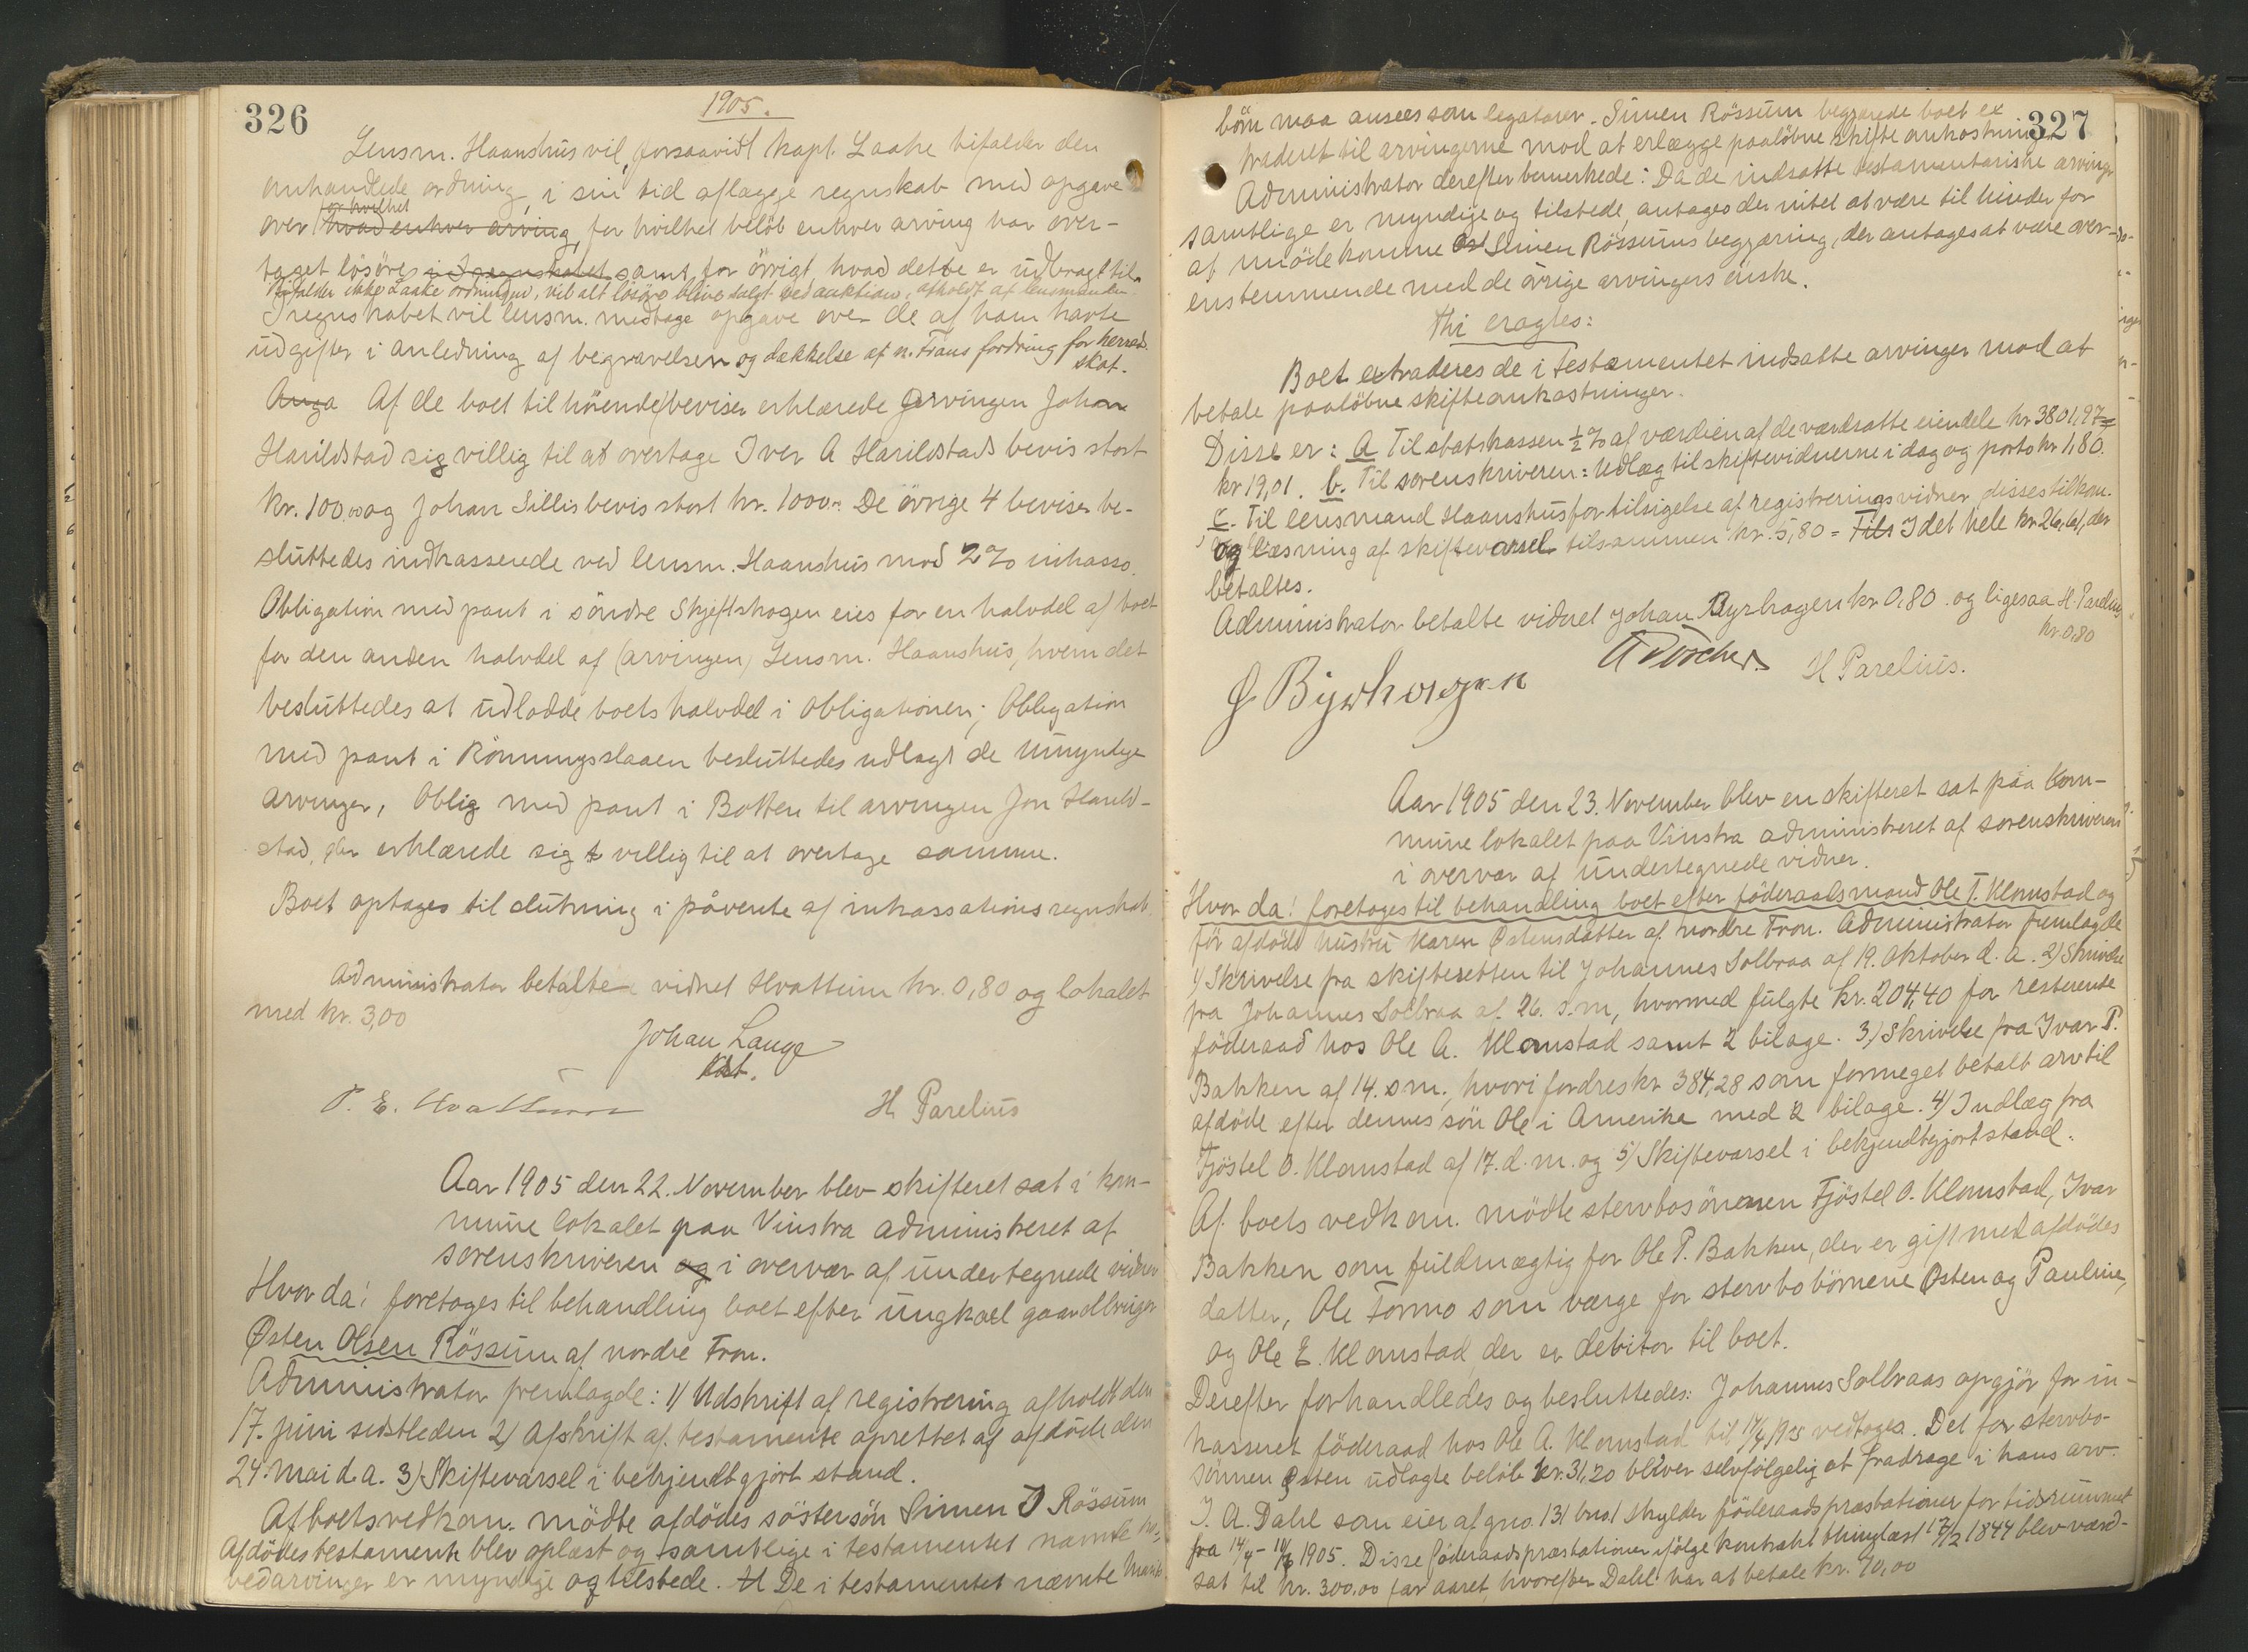 326
1905.
Lensm. Haanshus vil, forsaavidt kapt. Laake tifalder den
omhandlede ordning, i sin tid aflægge regnskab med opgave
for hvilket
over hvad enhver arving, for hvilket beløb enhver arving har over-
taget løsøre i I regnskabet samt for övrigt, hvad dette er udbragt til.
Bifalder ikke Laake ordningen, vil alt løsøre blive solgt ved auktion, afholdt af lensmanden
I regnskabet vil lensm. medtage opgave over de af ham havte
udgifter i anledning af begravelsen og dækkelse af n. Frons fordring for herred-
skat.
Anga Af de boet tilhörende beviser erklærede Arvingen Johan
Harildstad sig villig til at overtage Iver A Harildstads bevis stort
kr. 100,00 og Johan Sillis bevis stort kr. 1000.- De övrige 4 beviser be-
sluttedes indkasserede ved lensm. Haanshus mod 2% inkasso.
Obligation med pant i söndre Skjeftskogen eies for en halvdel af boet
for den anden halvdel af (arvingen) Lensm. Haanshus, hvem det
besluttedes at udlodde boets halvdel i Obligationen; Obligation
med pant i Rönningsslaaen besluttedes udlagt de Umyndige
arvinger, Oblig med pant i Botten til arvingen Jon Harild-
stad, der erklærede sig t villig til at overtage samme.
Boet optages til slutning i påvente af inkassations regnskab.
Administrator betalte vidnet Hvattum kr. 0,80 og lokalet
med kr. 3,00
Johan Lange
Kst.
P. E. Hvattum H. Parelius
Aar 1905 den 22. November blev skifteret sat i kom-
mune lokalet paa Vinstra administreret af
sorenskriveren og i overvær af undertegnede vidner
Hvor da: foretoges til behandling boet efter ungkael gaardbruger
Østen Olsen Rössum af nordre Fron.
Administrator fremlagde: 1) Udskrift af registrering afholdt den
17. juni sidstleden 2) Afskrift af testamente oprettet af afdöde den
24. mai d.a. 3) Skiftevarsel i bekjendtgjort stand.
Af boets vedkom. mödte afdödes söstersön Simen O Rössum
Afdödes testamente blev oplæst og samtlige i testamentet nævnte ho-
vedarvinger er myndige og tilstede. U De i testamentet nævnte Marits
327
börn maa ansees som legatarer. Simen Rössum begjærede boet ex
traderet til arvingerne mod at erlægge paalöbne skifte omkostninger
Administrator derefter bemerkede: Da de indsatte testamentariske arvinger
samtlige er myndige og tilstede, antages der intet at være til hinder for
at imödekomme Os Simen Rössums begjæring, der antages at være over-
ensstemmende med de övrige arvingers önske.
Thi eragtes:
Boet extraderes de i testamentet indsatte arvinger mod at
betale paalöbne skifteomkostninger.
Disse er: a Til statskassen ½% af værdien af de værdsatte eiendele kr 3801,97 =
kr 19,01. b. Til sorenskriveren: Udlæg til skiftevidnerne i dag og porto kr 1,80.
c. Til lensmand Haanshus for tilsigelse af registreringsvidner, disses tilkom.
og læsning af skiftevarsel tilsammen kr. 5,80 = Tils I det hele kr 26,61, der
betaltes.
Administrator betalte vidnet Johan Byrhagen kr 0,80 og ligesaa H. Parelius
kr 0,80
J Byrhagen H Parelius.
Aar 1905 den 23. November blev en skifteret sat paa kom-
mune lokalet paa Vinstra administreret af sorenskriveren
i overvær af undertegnede vidner.
Hvor da: foretoges til behandling boet efter föderaadsmand Ole T. Klomstad og
för afdöde hustru Karen Østensdatter af nordre Fron. Administrator fremlagde
1) Skrivelse fra skifteretten til Johannes Solbraa af 19. Oktober d.a. 2) Skrivelse
fra Johannes Solbraa af 26. s.m, hvormed fulgte kr. 204,40 for resterende
föderaad hos Ole A. Klomstad samt 2 bilage. 3) Skrivelse fra Ivar P.
Bakken af 14. s.m., hvori fordres kr 384,28 som formeget betalt arv til
afdöde efter dennes sön Ole i Amerika med 2 bilage. 4) Indlæg fra
Fjöstel O. Klomstad af 17. d.m. og 5) Skiftevarsel i bekjendtgjort stand.
Af boets vedkom. mödte stervbosönnen Fjöstel O. Klomstad, Ivar
Bakken som fuldmægtig for Ole P. Bakken, der er gift med afdödes
datter, Ole Formo som værge for stervbobörnene Østen og Pauline,
og Ole E. Klomstad der er debitor til boet.
Derefter forhandledes og besluttedes: Johannes Solbraas opgjör for in-
kasseret föderaad hos Ole A. Klomstad til 14/4 1905 vedtoges. Det for stervbo-
sönnen Østen udlagte belöb kr. 31,20 bliver selvfölgelig at fradrage i hans arv.
J. A. Dahl som eier af gno. 131 bno.1 skylder föderaadspræstationer for tidsrummet
fra 14/4 - 1905. Disse föderaadspræstationer ifölge kontrakt thinglæst 1844 blev værd-
sat til kr. 300,00 for aaret, hvorefter Dahl har at betale kr. 70,00